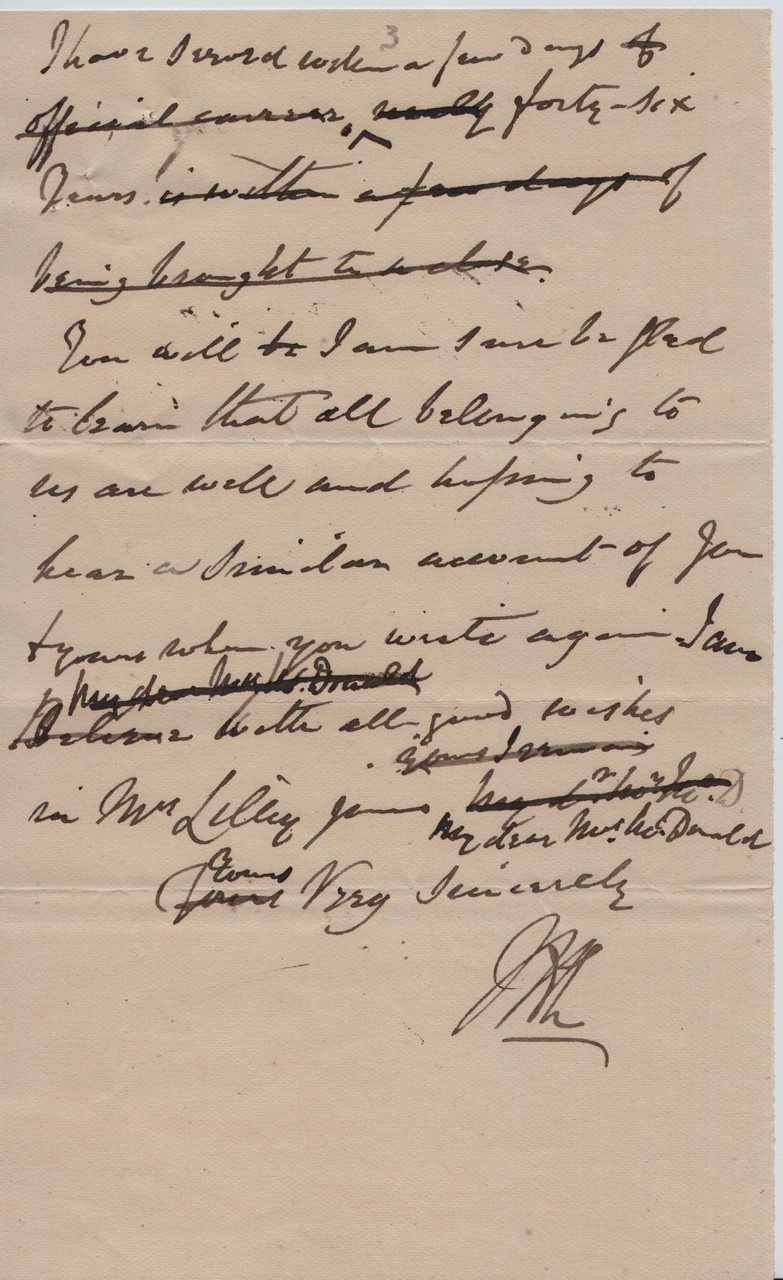 3
I have served within a few days of
official career, nearly forty-six
Years. is within a few days of
being brought to a close.
You will be I am sure be glad
to learn that all belonging to
us are well and hoping to
hear a similar account of you
& yours when you write again I am
my dear Mrs Mc.Donald
Believe with all good wishes
Yours I remain
in Mrs Lilley joins my dr Mrs Mc. D
my dear Mrs Mc.Donald
Yours
Yours Very Sincerely